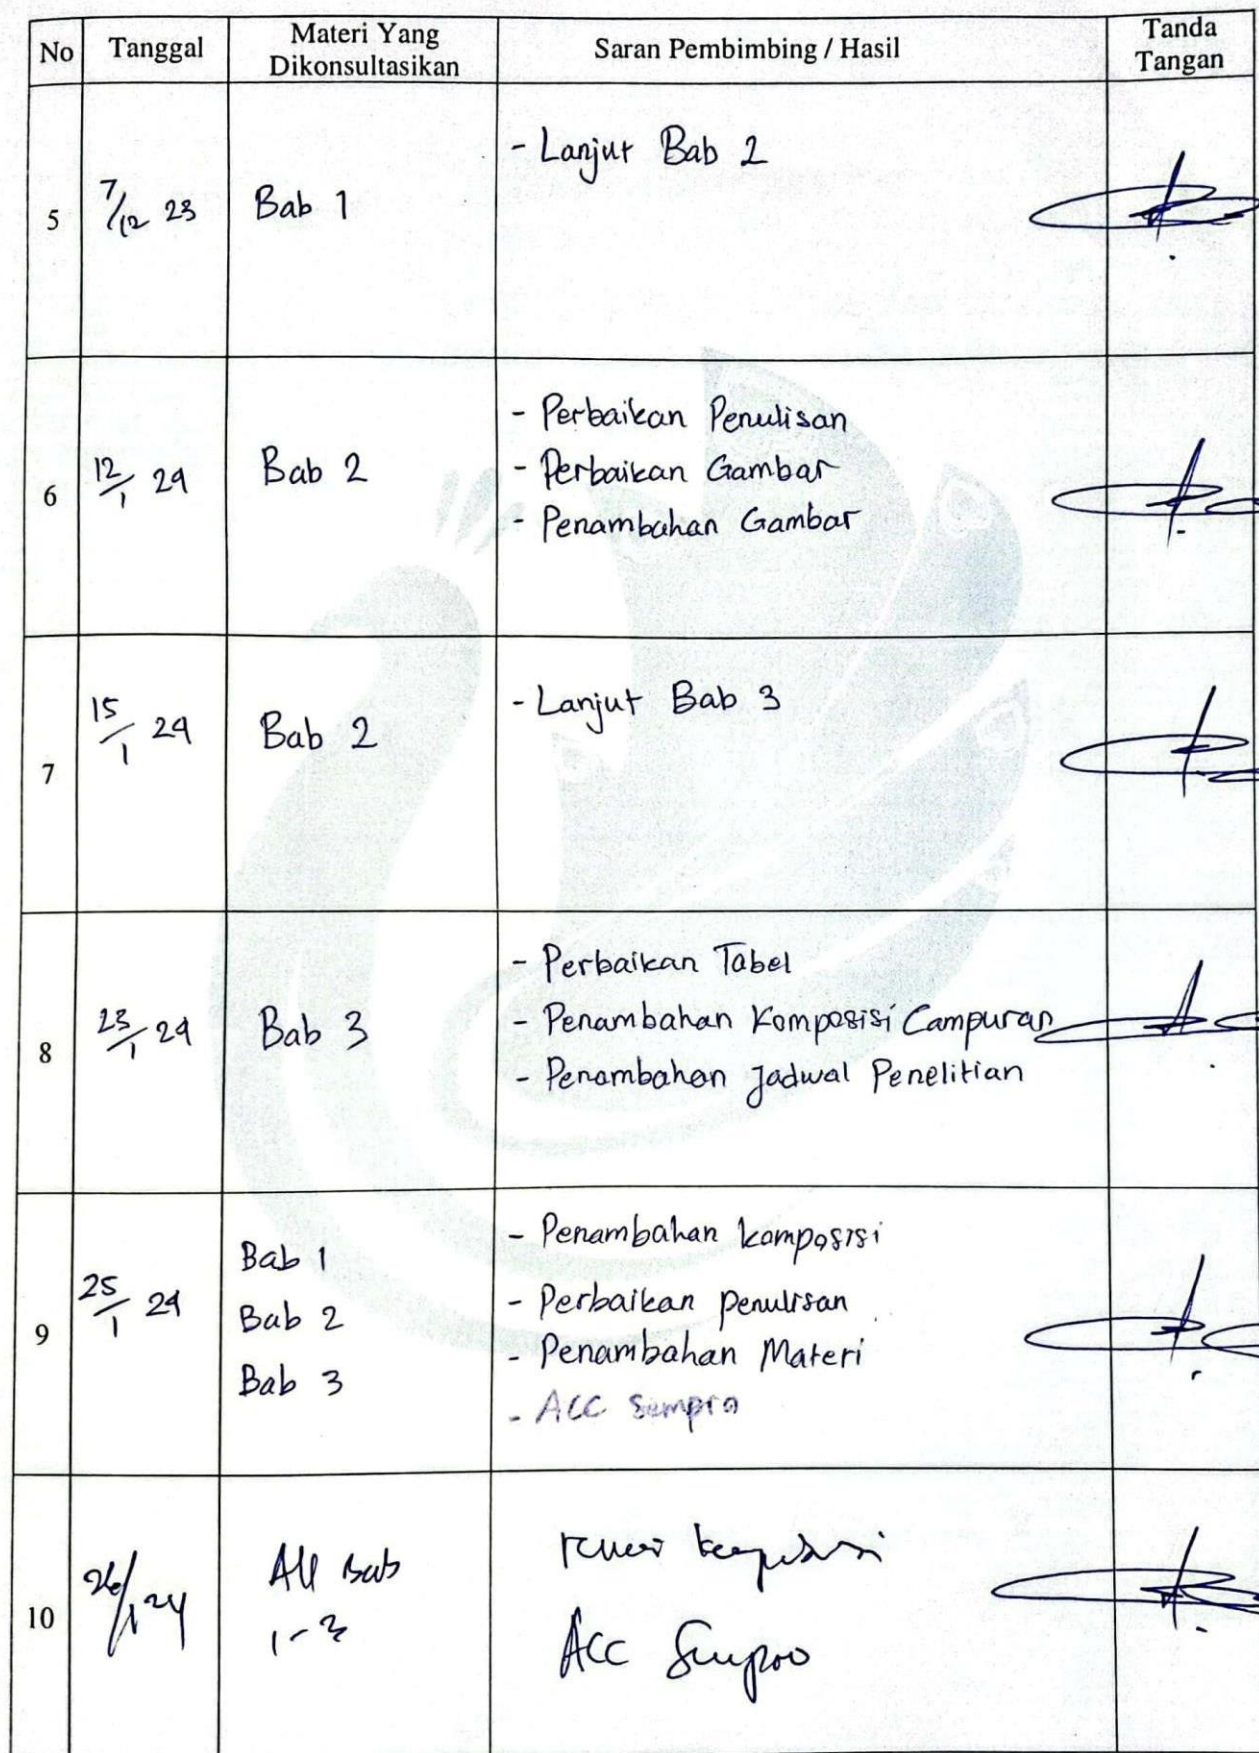 No Tanggal Materi Yang Dikonsultasikan Saran Pembimbing / Hasil Tanda Tangan
5 7/12 23 Bab 1
- Lanjut Bab 2
6 12/1 24 Bab 2
- Perbaikan Penulisan
- Perbaikan Gambar
- Penambahan Gambar
7 15/1 24 Bab 2
- Lanjut Bab 3
8 23/1 24 Bab 3
- Perbaikan Tabel
- Penambahan Komposisi Campuran
- Penambahan Jadwal Penelitian
9 25/1 24
Bab 1
Bab 2
Bab 3
- Penambahan komposisi
- Perbaikan penulisan
- Penambahan Materi
- ACC Sempro
10 26/1 24
All Bab
1-3
ACC Sempro